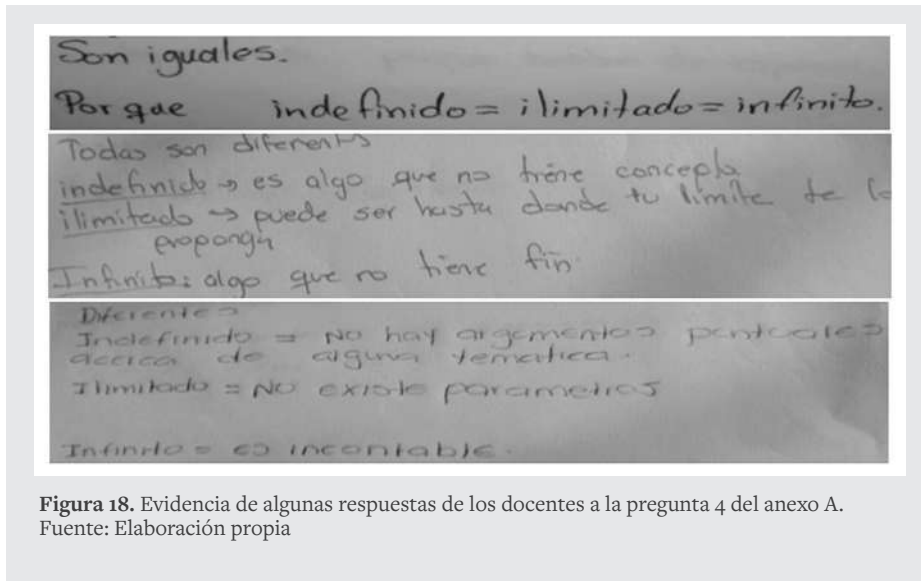 Son iguales.
Porque indefinido = ilimitado = infinito.
Todas son diferentes
indefinido → es algo que no tiene concepto
ilimitado → puede ser hasta donde tu límite te lo
proponga
Infinito: algo que no tiene fin.
Diferentes
Indefinido = No hay argumentos puntuales
acerca de alguna temática.
Ilimitado = No existe parametros
Infinito = es incontable.
Figura 18. Evidencia de algunas respuestas de los docentes a la pregunta 4 del anexo A.
Fuente: Elaboración propia